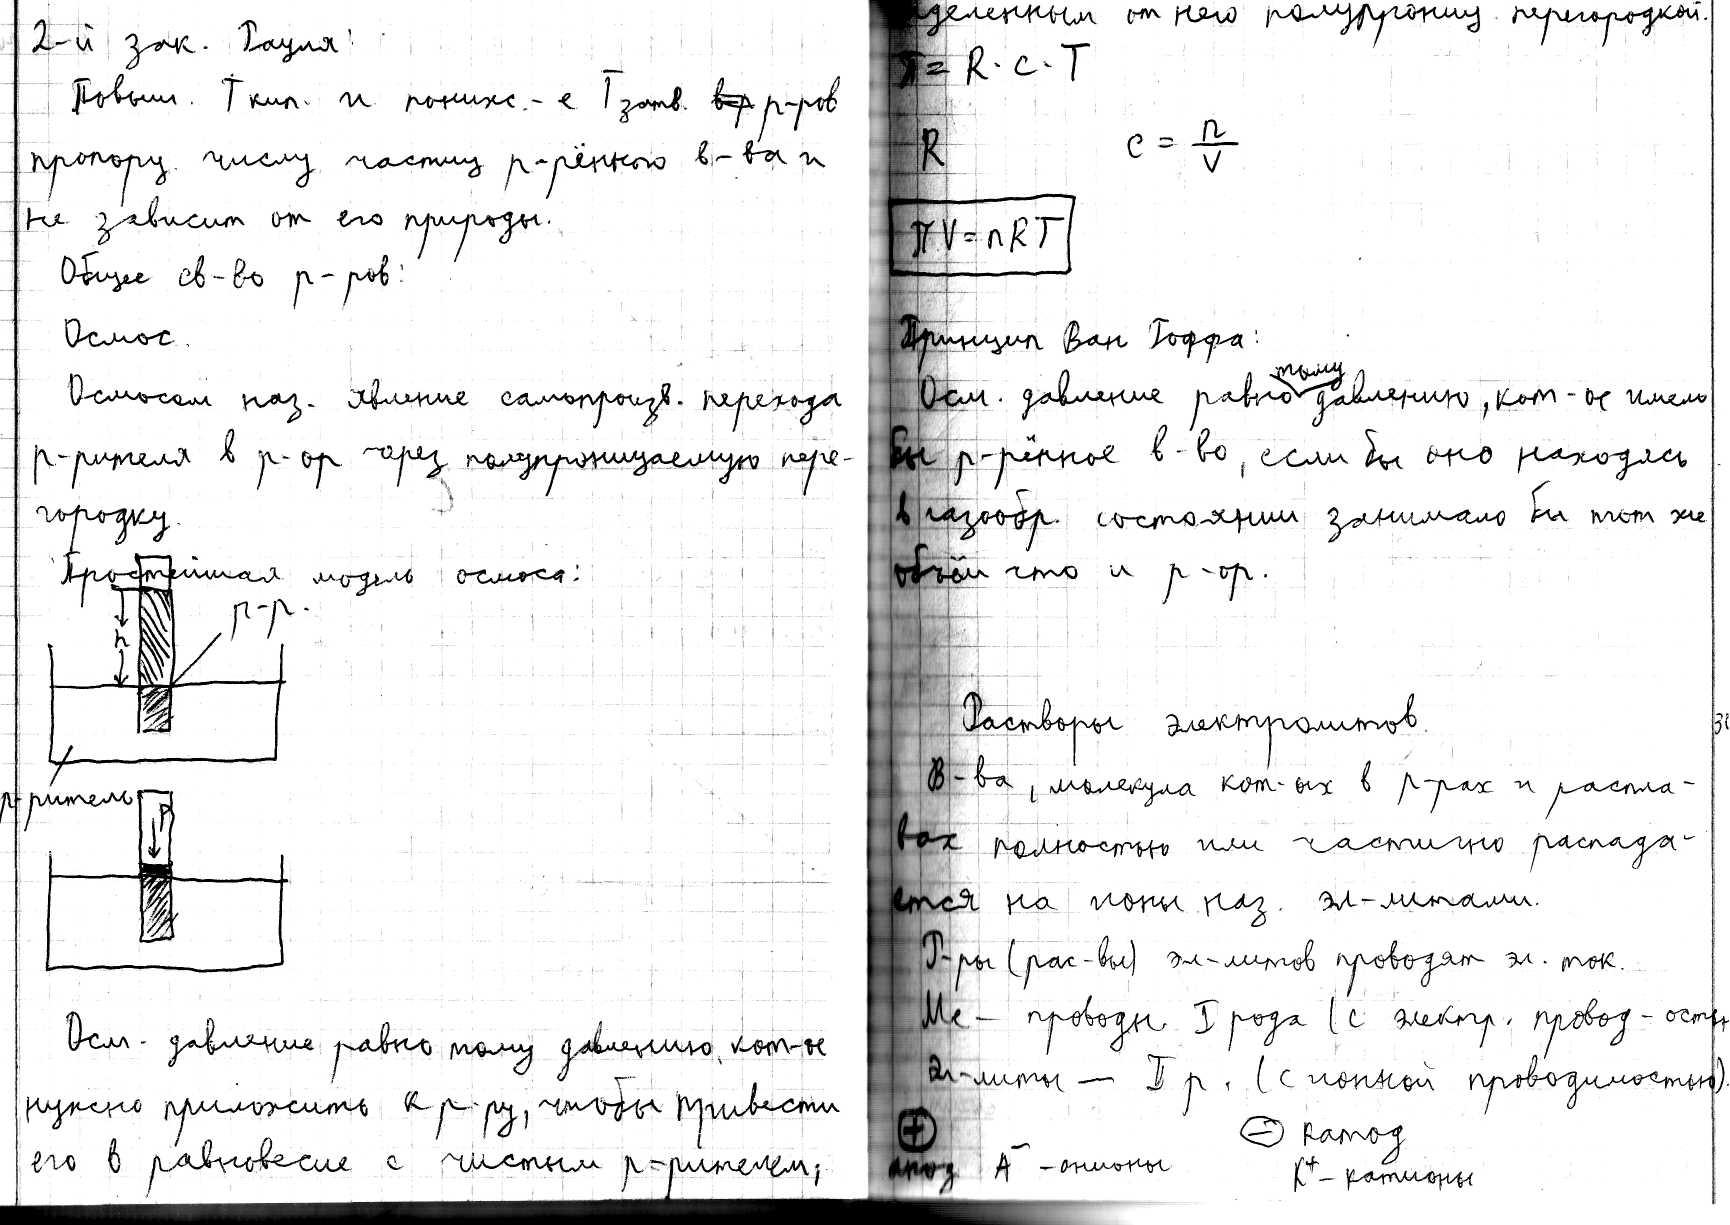 2-й зак. Рауля:
Повыш. Tкип. и пониж.-е Tзатв. р-ров
пропорц. числу частиц р-рённого в-ва и
не зависит от его природы.
Общее св-во р-ров:
Осмос.
Осмосом наз. явление самопроизв. перехода
р-рителя в р-ор через полупроницаемую пере-
городку.
Простейшая модель осмоса:
р-р.
h
р-ритель
P
Осм. давление равно тому давлению, кот-ое
нужно приложить к р-ру, чтобы привести
его в равновесие с чистым р-рителем,
деленным от него полупрониц. перегородкой.
π = R·c·T
R c = n/V
πV=nRT
Принцип Ван Гоффа:
Осм. давление равно тому давлению, кот-ое имело
бы р-рённое в-во, если бы оно находясь
в газообр. состоянии занимало бы тот же
объём что и р-ор.
Растворы электролитов.
В-ва, молекула кот-ых в р-рах и распла-
вах полностью или частично распада-
ется на ионы наз. эл-литами.
Р-ры (рас-вы) эл-литов проводят эл. ток.
Ме — проводн. I рода (с электр. провод-остью
Эл-литы — II р. (с ионной проводимостью).
⊕ ⊖ катод
анод A⁻ - анионы K⁺ - катионы